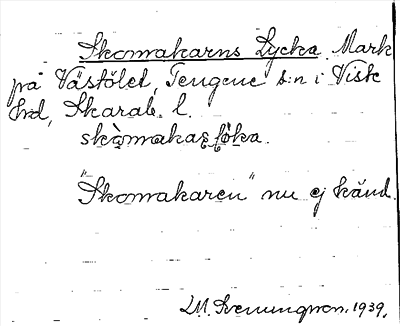 Skomakarns Lycka. Mark
på Västölet, Tengene s:n i Viste
hd, Skarab. l.
"Skomakaren" nu ej känd.
1939.